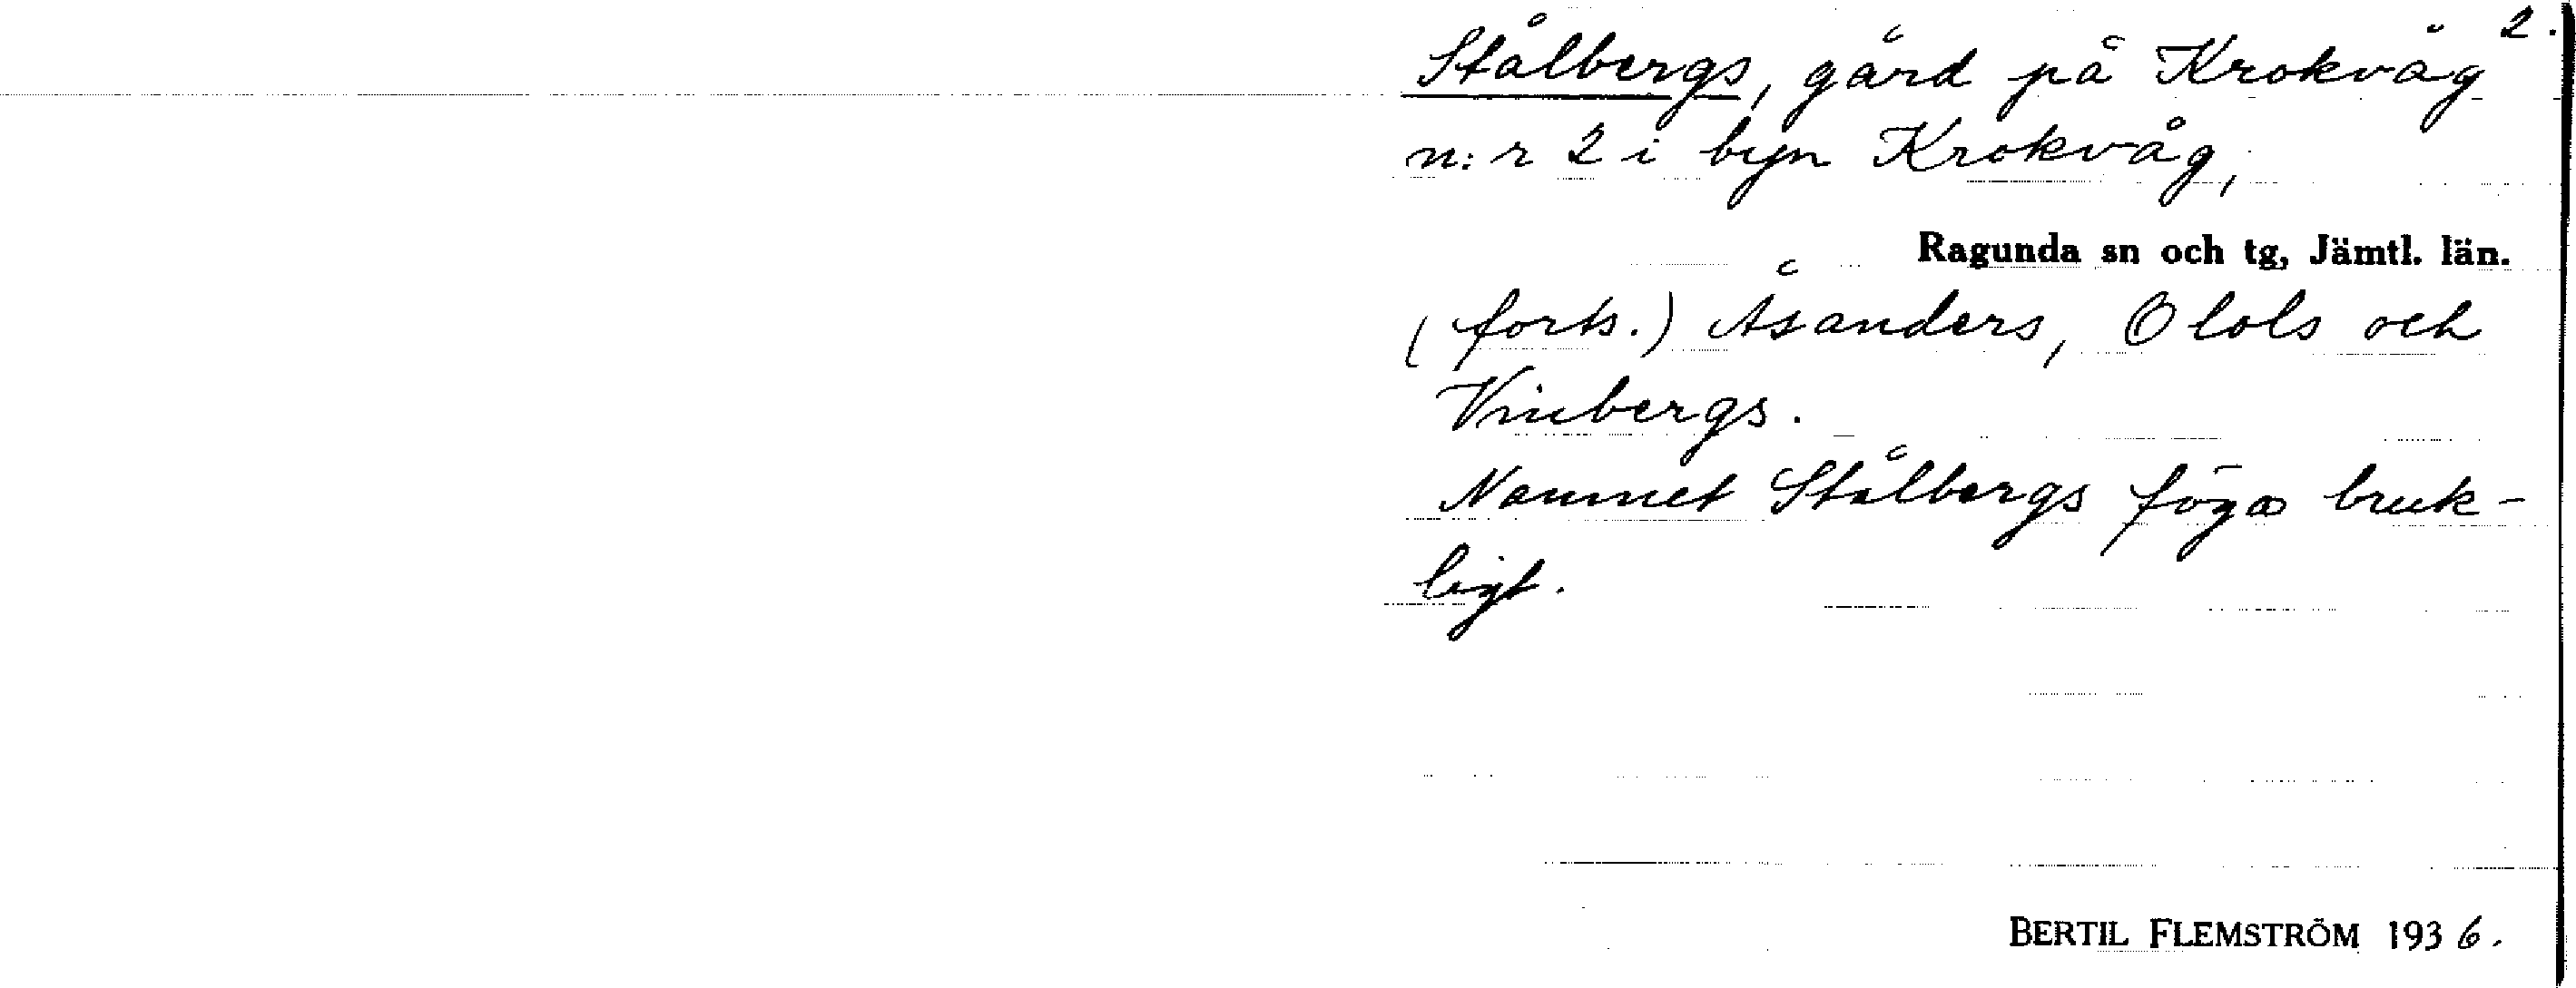 2.
Stålbergs, gård på Krokvåg
n:r 2 i byn Krokvåg,
Ragunda sn och tg, Jämtl. län.
(forts.) Åsanders, Olols och
Vinbergs.
Namnet Stålbergs föga bruk-
ligt.
BERTIL FLEMSTRÖM 1936.